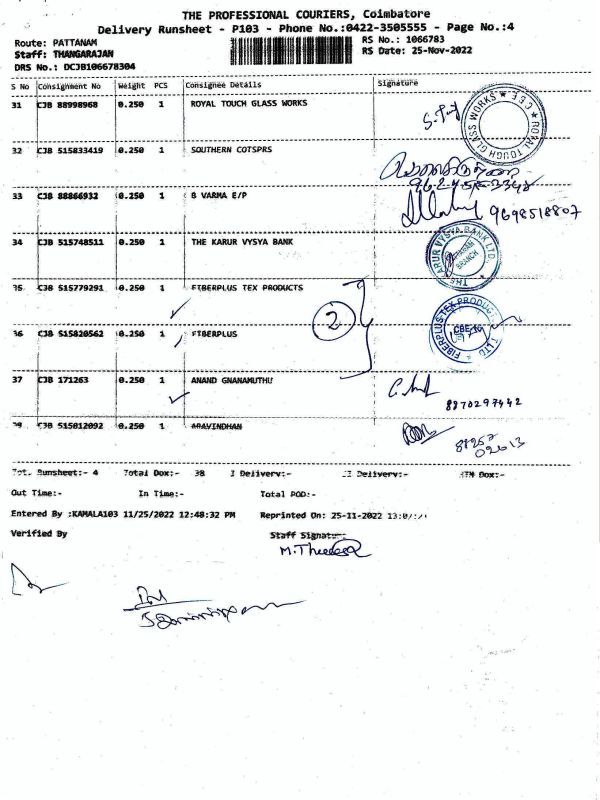 THE PROFESSIONAL COURIERS, Coimbatore
Delivery Runsheet - P103 - Phone No.:0422-3505555 - Page No.:4
Route: PATTANAM
RS No.: 1066783
Staff: THANGARAJAN
RS Date: 25-Nov-2022
DRS No.: DCJB106678304
S No Consignment No Weight PCS Consignee Details Signature
31 CJB 88998968 0.250 1 ROYAL TOUCH GLASS WORKS
ROYAL TOUGH GLASS WORKS ★ CBE ★
32 CJB 515833419 0.250 1 SOUTHERN COTSPRS
33 CJB 88866932 0.250 1 B VARMA E/P
9698518807
34 CJB 515748511 0.250 1 THE KARUR VYSYA BANK
THE KARUR VYSYA BANK LTD. BRANCH
35 CJB 515779291 0.250 1 FIBERPLUS TEX PRODUCTS
2
FIBERPLUS TEX PRODUCTS LTD
36 CJB 515820562 0.250 1 FIBERPLUS
37 CJB 171263 0.250 1 ANAND GNANAMUTHU
8870297442
38 CJB 515812092 0.250 1 ARAVINDHAN
Tot. Runsheet:- 4 Total Dox:- 38 Delivery:- Delivery:- Dox:-
Out Time:- In Time:- Total POD:-
Entered By :KAMALA103 11/25/2022 12:48:32 PM Reprinted On: 25-11-2022
Verified By Staff Signatu